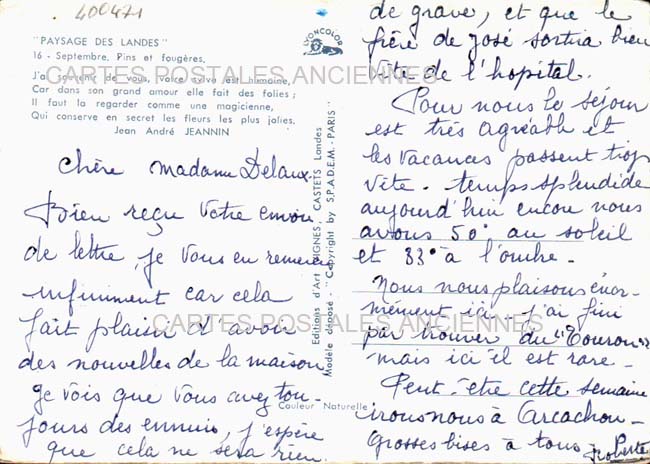 400471
"PAYSAGE DES LANDES"
16 - Septembre. Pins et fougères.
J'ai souvent de vous, votre sylve est humaine,
Car dans son grand amour elle fait des folies ;
Il faut la regarder comme une magicienne,
Qui conserve en secret les fleurs les plus jolies.
Jean André JEANNIN
LYONCOLOR
CARTES POSTALES ANCIENNES
chère Madame Delaux.
Bien reçu votre envoi
de lettre, je vous en remercie
infiniment car cela
fait plaisir d'avoir
des nouvelles de la maison
je vois que vous avez tou-
jours des ennuis, j'espère
que cela ne sera rien
Editions d'Art VIGNES, CASTETS Landes
Modèle déposé "Copyright by S.P.A.D.E.M. - PARIS"
Couleur Naturelle
CARTES POSTALES ANCIENNES
de grave, et que le
frère de José sortira bien
vite de l'hopital.
Pour nous le séjour
est très agréable et
les vacances passent trop
vite - temps splendide
aujourd'hui encore nous
avons 50° au soleil
et 33° à l'ombre -
Nous nous plaisons énor-
mément ici - j'ai fini
par trouver du "Touron"
mais ici il est rare -
Peut-être cette semaine
irons nous à Arcachon -
Grosses bises à tous - Roberte